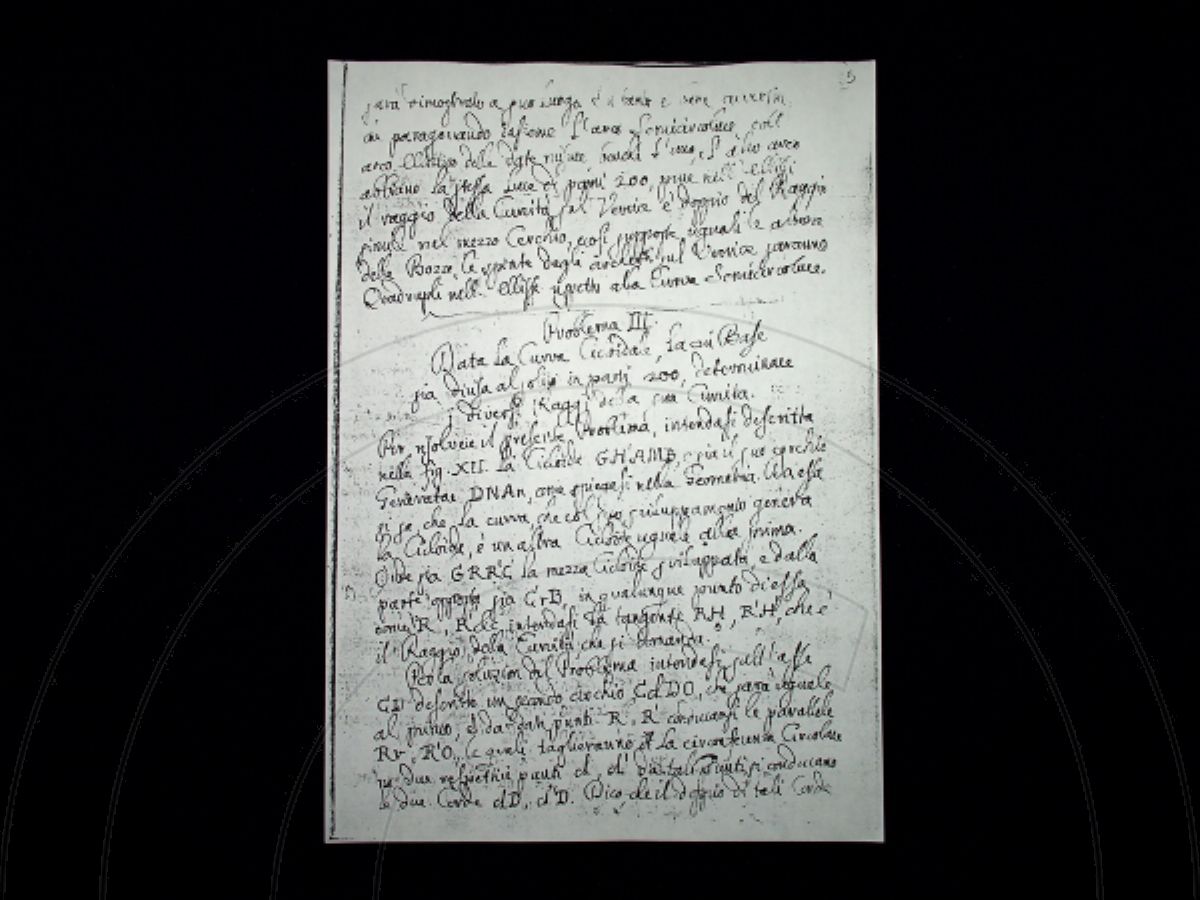 5
sarà dimostrato a suo luogo
paragonando insieme l'arco Semicircolare, coll'
arco Ellittico delle l'uno, e l'altro arco
abbiano la stessa luce di parti 200, pure nell'Ellissi
il raggio della Curvità sul Vertice è doppio del Raggio
simile nel mezzo Cerchio, così supposte uguali le altezze
delle Bozze, le spinte degli archetti sul Vertice saranno
Quadruple nell'Ellisse rispetto alla Curva Semicircolare.
Problema III.
Data la Curva Cicloidale, la cui Base
sia divisa al solito in parti 200, determinare
i diversi Raggi della sua Curvità.
Per risolvere il presente Problema, intendasi descritta
nella fig. XII. la Cicloide GHAMB, e sia il suo cerchio
Generatore DNAn, come spiegasi nella Geometria. Da essa
si sa, che la curva, che col suo sviluppamento genera
la Cicloide, è un altra Cicloide uguale alla prima.
Onde sia GRR'C la mezza Cicloide sviluppata, e dalla
parte opposta sia CrB, in qualunque punto di essa
come R, R' &c. intendasi la tangente RH, R'H', che è
il Raggio della Curvità, che si domanda.
Per la soluzion del Problema intendasi sull'asse
CD descritto un secondo cerchio CdDO, che sarà uguale
al primo, e da' dati punti R, R' conducansi le parallele
Rr, R'O, le quali taglieranno la circonferenza Circolare
ne' due rispettivi punti d, d' da' tali punti si conducano
le due Corde dD, d'D. Dico che il doppio di tali Corde